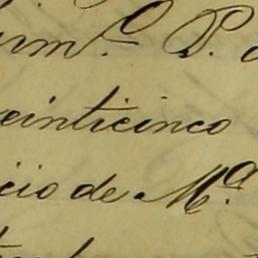 urm.º P. d
veinticinco
cio de M.ª